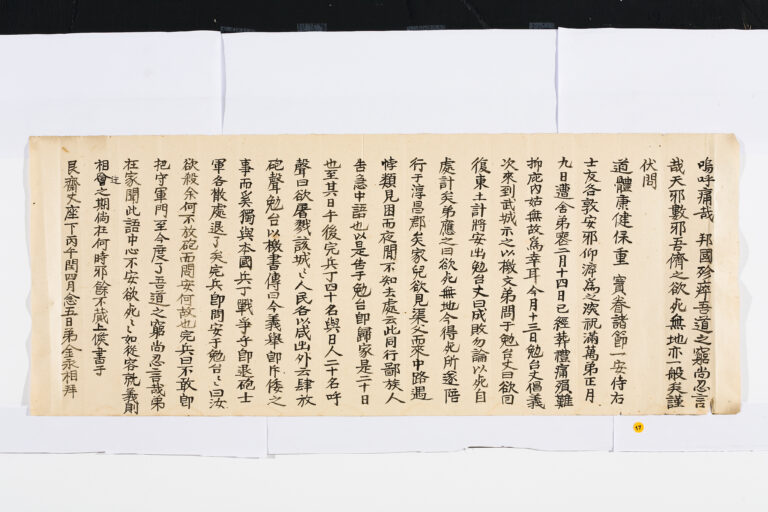 嗚呼痛哉 邦國殄瘁吾道之窮尚忍言
哉天邪數邪吾儕之欲死無地亦一般矣謹
伏問
道體康健保重 寶眷諸節一安侍右
士友各敦安邪仰溯爲之深祝滿萬弟正月
九日遭舍弟喪二月十四日已經葬禮痛殞難
抑庇內姑無故爲幸耳今月十三日勉台丈倡義
次來到武城示之以檄文弟問于勉台丈曰欲回
復東土計將安出勉台丈曰成敗勿論以死自
處計矣弟應之曰欲死無地今得死所遂陪
行于淳昌郡矣家兒欲見渠父而來中路遇
悖類見困而夜閒不知去處云此同行鄙族人
告急中語也以是告于勉台卽歸家是二十日
也至其日午後完兵丁四十名與日人二十名呼
聲曰欲屠戮該城〻人民各以咸出外云肆放
砲聲勉台以檄書傳曰今義擧卽斥倭之
事而奚獨與本國兵丁戰爭乎卽退砲士
軍各散處退了矣完兵卽問安于勉台〻曰汝
欲殺余何不放砲而問安何故也完兵曰不敢卽
把守軍門至今度了吾道之窮尚忍言哉弟
在家聞此語中心不安欲死〻如從容就義則
相會之期倘在何時邪餘不備上候書于
艮齋丈座下丙午閏四月念五日弟金永相拜
17